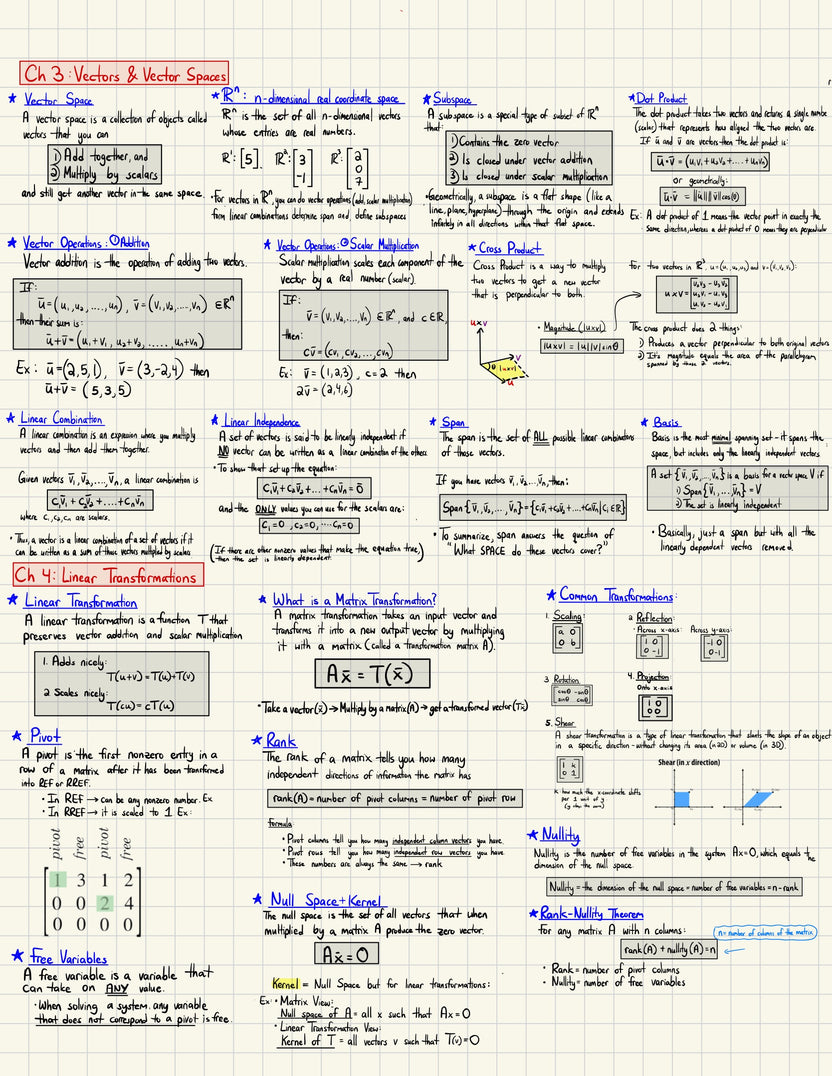 Ch 3: Vectors & Vector Spaces
★ Vector Space
A vector space is a collection of objects called
vectors that you can
1) Add together, and
2) Multiply by scalars
and still get another vector in the same space.
★ ℝⁿ: n-dimensional real coordinate space
ℝⁿ is the set of all n-dimensional vectors
whose entries are real numbers.
ℝ¹: [5] ℝ²: [3 -1] ℝ³: [2 0 7]
• For vectors in ℝⁿ, you can do vector operations (add, scalar multiplication)
from linear combinations determine span and, define subspaces
★ Subspace
A subspace is a special type of subset of ℝⁿ
that:
1) Contains the zero vector
2) Is closed under vector addition
3) Is closed under scalar multiplication
• Geometrically, a subspace is a flat shape (like a
line, plane, hyperplane) through the origin and extends
infinitely in all directions within that flat space.
★ Dot Product
The dot product takes two vectors and returns a single numbe
(scalar) that represents how aligned the two vectors are.
If ū and v̄ are vectors then the dot product is:
ū·v̄ = (u₁v₁ + u₂v₂ + .... + uₙvₙ)
or geometrically:
ū·v̄ = ||ū|| ||v̄|| cos(θ)
Ex: A dot product of 1 means the vector point in exactly the
same direction, whereas a dot product of 0 means they are perpendicular
★ Vector Operations: ① Addition
Vector addition is the operation of adding two vectors.
If:
ū = (u₁, u₂, ...., uₙ), v̄ = (v₁, v₂, ...., vₙ) ∈ℝⁿ
then their sum is:
ū+v̄ = (u₁+v₁, u₂+v₂, ....., uₙ+vₙ)
Ex: ū=(2,5,1), v̄=(3,-2,4) then
ū+v̄ = (5,3,5)
★ Vector Operations: ② Scalar Multiplication
Scalar multiplication scales each component of the
vector by a real number (scalar).
If:
v̄ = (v₁, v₂, ..., vₙ) ∈ℝⁿ, and c∈ℝ,
then:
cv̄ = (cv₁, cv₂, ..., cvₙ)
Ex: v̄ = (1,2,3), c=2 then
2v̄ = (2,4,6)
★ Cross Product
Cross Product is a way to multiply
two vectors to get a new vector
that is perpendicular to both.
• Magnitude (|u×v|)
|u×v| = |u||v|sinθ
u×v
v
θ |u×v|
u
For two vectors in ℝ³, u=(u₁,u₂,u₃) and v=(v₁,v₂,v₃):
u×v = [u₂v₃ - u₃v₂
u₃v₁ - u₁v₃
u₁v₂ - u₂v₁]
The cross product does 2 things:
1) Produces a vector perpendicular to both original vectors
2) It's magnitude equals the area of the parallelogram
spanned by those 2 vectors.
★ Linear Combination
A linear combination is an expression where you multiply
vectors and then add them together.
Given vectors v̄₁, v̄₂, ..., v̄ₙ, a linear combination is
C₁v̄₁ + C₂v̄₂ + ... + Cₙv̄ₙ
where C₁, C₂, Cₙ are scalars.
• Thus, a vector is a linear combination of a set of vectors if it
can be written as a sum of those vectors multiplied by scalars
★ Linear Independence
A set of vectors is said to be linearly independent if
NO vector can be written as a linear combination of the others.
• To show that set up the equation:
C₁v̄₁ + C₂v̄₂ + ... + Cₙv̄ₙ = 0̄
and the ONLY values you can use for the scalars are:
C₁=0, C₂=0, ... Cₙ=0
(If there are other nonzero values that make the equation true,
then the set is linearly dependent.)
★ Span
The span is the set of ALL possible linear combinations
of those vectors.
If you have vectors v̄₁, v̄₂, ..., v̄ₙ, then:
Span{v̄₁, v̄₂, ..., v̄ₙ} = {C₁v̄₁ + C₂v̄₂ + ... + Cₙv̄ₙ | Cᵢ∈ℝ}
• To summarize, span answers the question of
"What SPACE do these vectors cover?"
★ Basis
Basis is the most minimal spanning set - it spans the
space, but includes only the linearly independent vectors.
A set {v̄₁, v̄₂, ..., v̄ₙ} is a basis for a vector space V if
1) Span{v̄₁, ..., v̄ₙ} = V
2) The set is linearly independent
• Basically, just a span but with all the
linearly dependent vectors removed.
Ch 4: Linear Transformations
★ Linear Transformation
A linear transformation is a function T that
preserves vector addition and scalar multiplication
1. Adds nicely:
T(u+v) = T(u)+T(v)
2 Scales nicely:
T(cu) = cT(u)
★ Pivot
A pivot is the first nonzero entry in a
row of a matrix after it has been transformed
into REF or RREF.
• In REF → can be any nonzero number. Ex
• In RREF → it is scaled to 1 Ex:
pivot free pivot free
1 3 1 2
0 0 2 4
0 0 0 0
★ Free Variables
A free variable is a variable that
can take on ANY value.
• When solving a system, any variable
that does not correspond to a pivot is free.
★ What is a Matrix Transformation?
A matrix transformation takes an input vector and
transforms it into a new output vector by multiplying
it with a matrix (called a transformation matrix A).
Ax̄ = T(x̄)
• Take a vector (x̄) → Multiply by a matrix (A) → get a transformed vector (Tx̄)
★ Rank
The rank of a matrix tells you how many
independent directions of information the matrix has
rank(A) = number of pivot columns = number of pivot row
formula
• Pivot columns tell you how many independent column vectors you have.
• Pivot rows tell you how many independent row vectors you have
• These numbers are always the same → rank
★ Null Space + Kernel
The null space is the set of all vectors that when
multiplied by a matrix A produce the zero vector.
Ax̄ = 0
Kernel = Null Space but for linear transformations:
Ex: • Matrix View:
Null space of A = all x such that Ax=0
• Linear Transformation View:
Kernel of T = all vectors v such that T(v)=0
★ Common Transformations:
1. Scaling:
[a 0
0 b]
2 Reflection:
Across x-axis: Across y-axis:
[1 0
0 -1]
[-1 0
0 1]
3. Rotation
[cosθ -sinθ
sinθ cosθ]
4. Projection
Onto x-axis
[1 0
0 0]
5. Shear
A shear transformation is a type of linear transformation that slants the shape of an object
in a specific direction - without changing its area (in 2D) or volume (in 3D).
[1 k
0 1]
K: how much the x-coordinate shifts
per 1 unit of y
(y stays the same)
Shear (in x direction)
★ Nullity
Nullity is the number of free variables in the system Ax=0, which equals the
dimension of the null space.
Nullity = the dimension of the null space = number of free variables = n-rank
★ Rank-Nullity Theorem
For any matrix A with n columns:
n = number of columns of the matrix
rank(A) + nullity(A) = n
• Rank = number of pivot columns
• Nullity = number of free variables